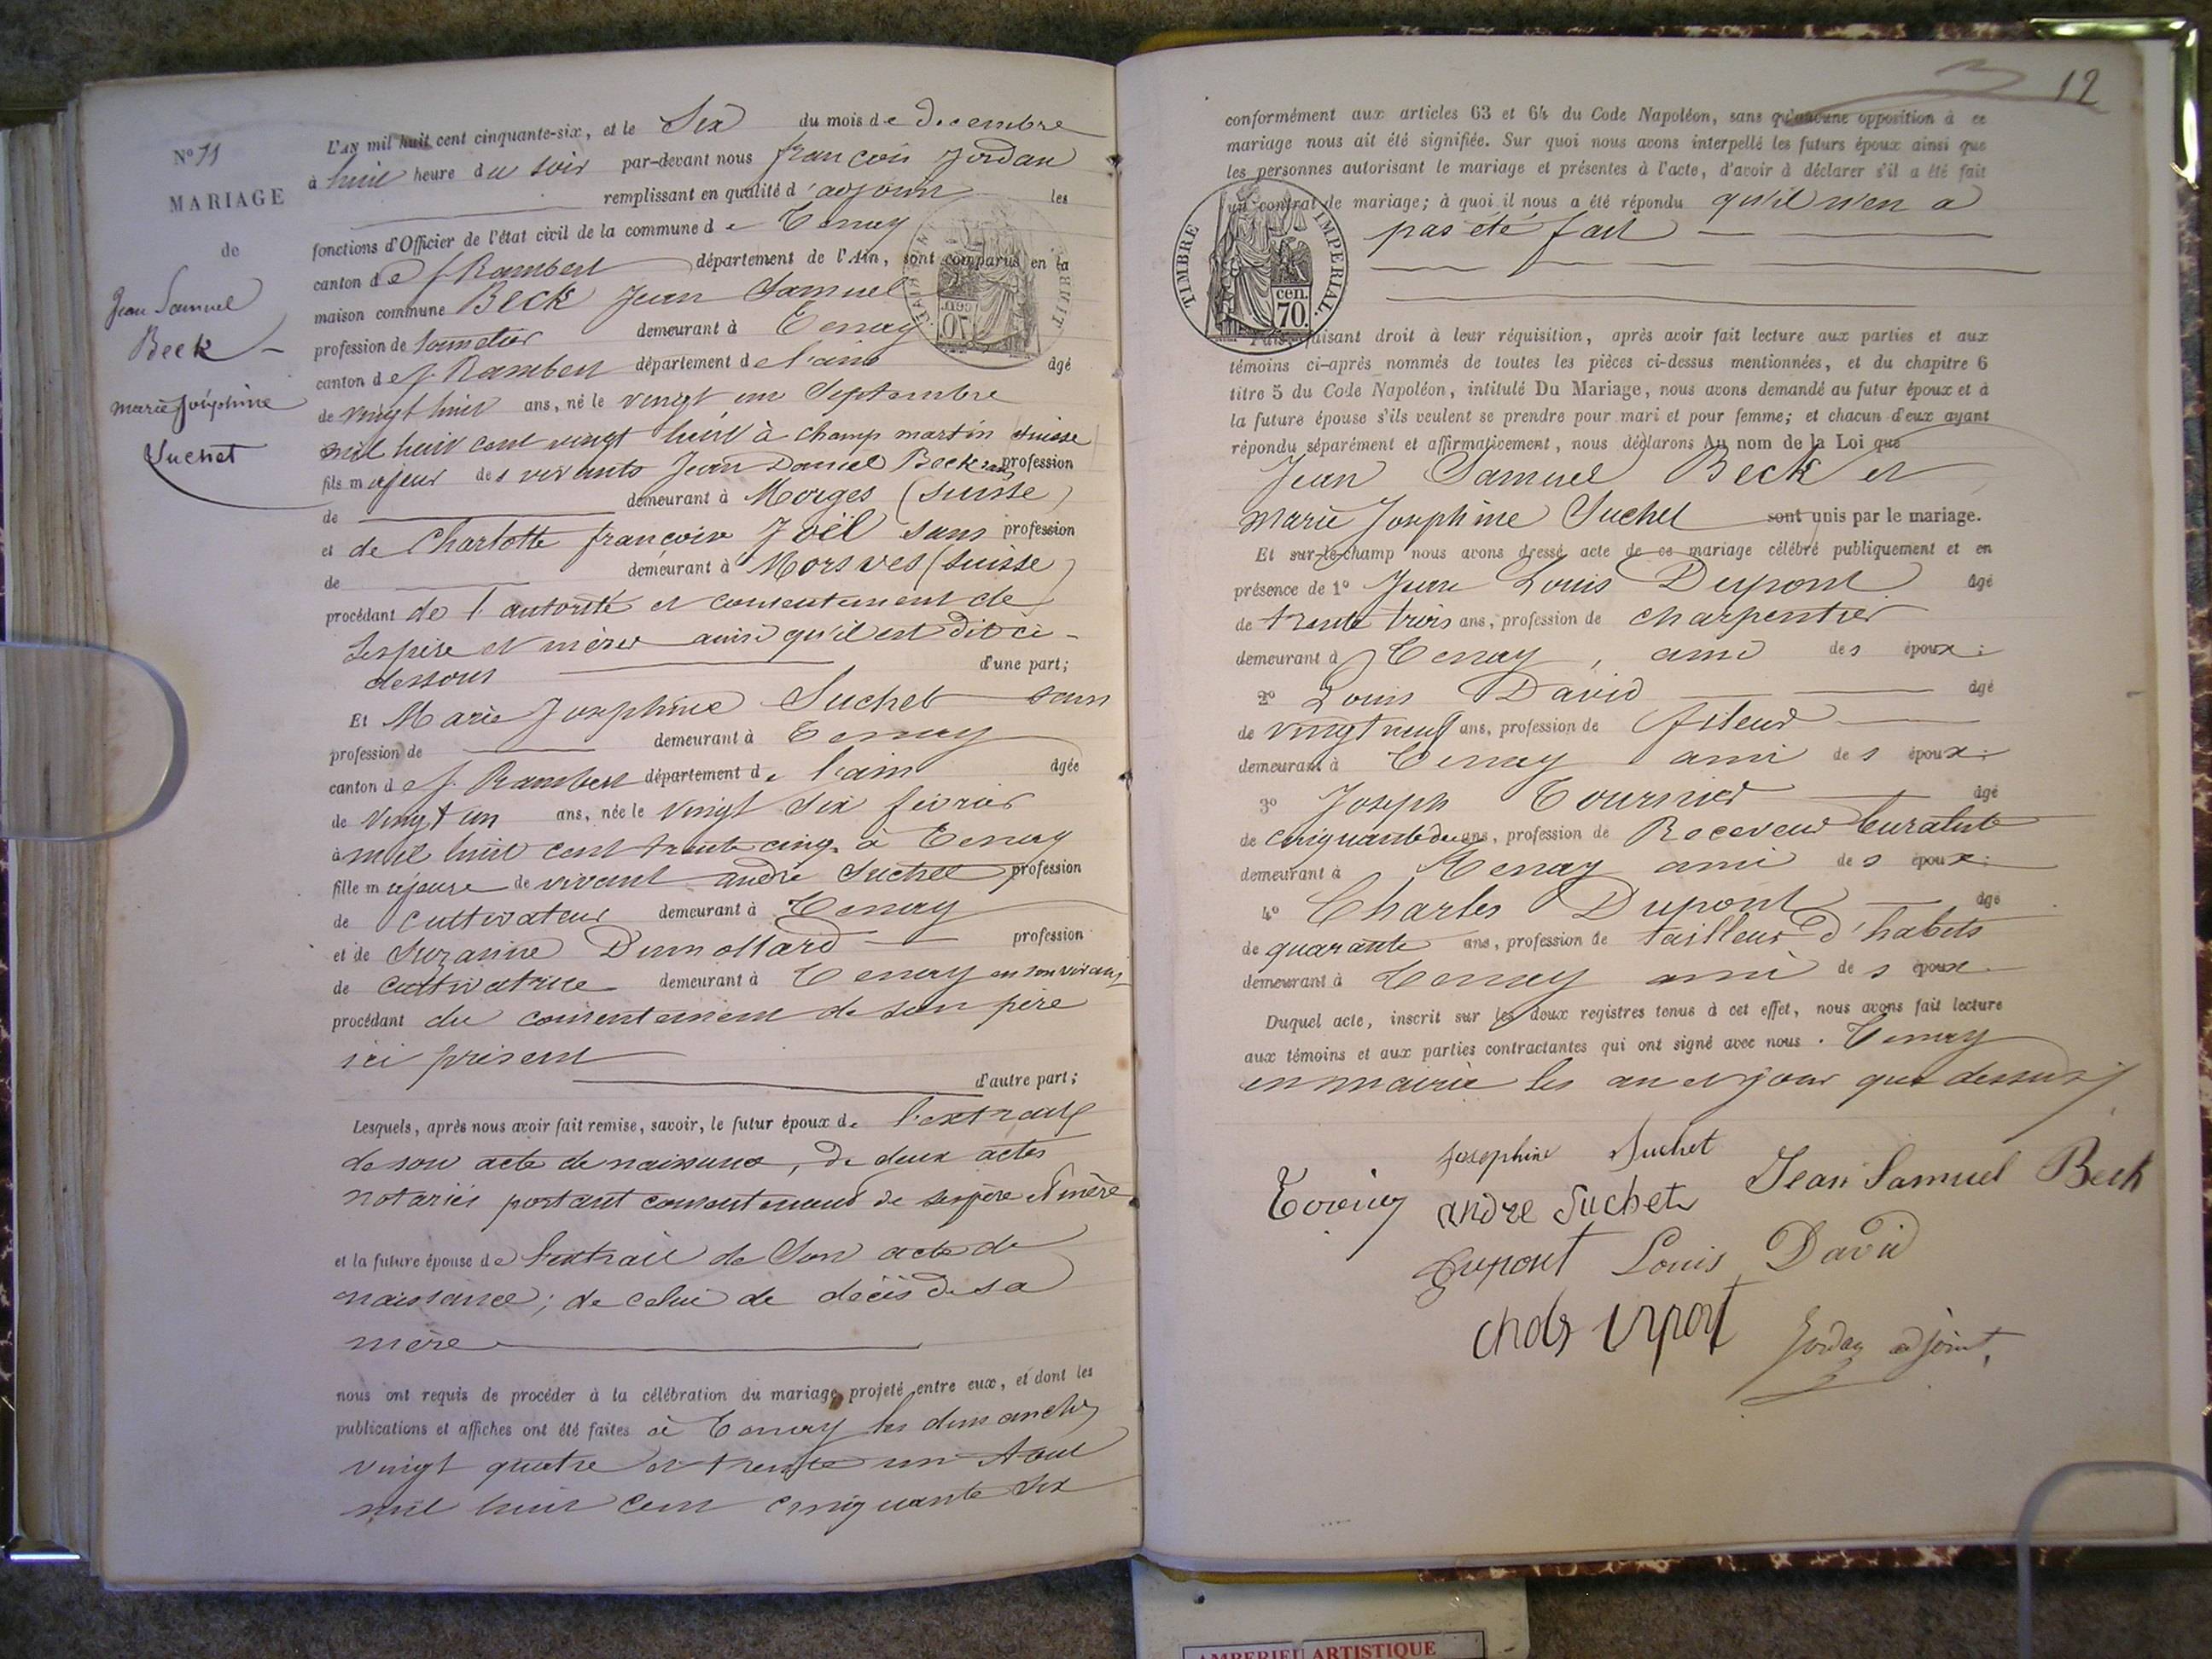 N° 11
MARIAGE
de
Jean Samuel
Beck
marie Joséphine
Suchet
L'AN mil huit cent cinquante-six, et le Six du mois de decembre
à huit heure du soir par-devant nous françois Jordan
remplissant en qualité d'adjoint les
fonctions d'Officier de l'état civil de la commune de Tenay
canton de St Rambert département de l'Ain, sont comparus en la
maison commune Beck Jean Samuel
profession de demeurant à Tenay
canton de St Rambert département de l'ain âgé
de vingt huit ans, né le vingt un Septembre
mil huit cent vingt huit à Champ martin Suisse
fils majeur des vivants Jean Daniel Beck sans profession
de demeurant à Morges (Suisse)
et de Charlotte françoise Joël sans profession
de demeurant à (Suisse)
procédant de l'autorité et consentement de
ses père et mère ainsi qu'il est dit ci-
dessous d'une part;
Et Marie Josephine Suchet sans
profession de demeurant à Tenay
canton de St Rambert département de l'ain âgée
de vingt un ans, née le vingt Six février
à mil huit cent trente cinq à Tenay
fille majeure de vivant andré Suchet profession
de Cultivateur demeurant à Tenay
et de Suzanne Dumollard profession
de Cultivatrice demeurant à Tenay en son vivant
procédant du consentement de son père
ici présent
d'autre part;
Lesquels, après nous avoir fait remise, savoir, le futur époux de l'extrait
de son acte de naissance, de deux actes
notariés portant consentement de ses père et mère
et la future épouse de l'extrait de Son acte de
naissance; de celui de décès de sa
mère
nous ont requis de procéder à la célébration du mariage projeté entre eux, et dont les
publications et affiches ont été faites à Tenay les dimanches
vingt quatre et trente un Aout
mil huit cent cinquante six
12
conformément aux articles 63 et 64 du Code Napoléon, sans qu'aucune opposition à ce
mariage nous ait été signifiée. Sur quoi nous avons interpellé les futurs époux ainsi que
les personnes autorisant le mariage et présentes à l'acte, d'avoir à déclarer s'il a été fait
un contrat de mariage; à quoi il nous a été répondu qu'il n'en a
pas été fait
TIMBRE IMPÉRIAL
cen.
70.
Puis, faisant droit à leur réquisition, après avoir fait lecture aux parties et aux
témoins ci-après nommés de toutes les pièces ci-dessus mentionnées, et du chapitre 6
titre 5 du Code Napoléon, intitulé Du Mariage, nous avons demandé au futur époux et à
la future épouse s'ils veulent se prendre pour mari et pour femme; et chacun d'eux ayant
répondu séparément et affirmativement, nous déclarons Au nom de la Loi que
Jean Samuel Beck et
Marie Josephine Suchet sont unis par le mariage.
Et sur-le-champ nous avons dressé acte de ce mariage célébré publiquement et en
présence de 1° Jean Louis Dupont âgé
de trente trois ans, profession de charpentier
demeurant à Tenay, ami des époux;
2° Louis David âgé
de vingt neuf ans, profession de fileur
demeurant à Tenay ami des époux;
3° Joseph Tournier âgé
de cinquante deux ans, profession de Receveur buraliste
demeurant à Tenay ami des époux;
4° Charles Dupont âgé
de quarante ans, profession de tailleur d'habits
demeurant à Tenay ami des époux.
Duquel acte, inscrit sur les deux registres tenus à cet effet, nous avons fait lecture
aux témoins et aux parties contractantes qui ont signé avec nous. Tenay
en mairie les an et jour que dessus
Josephine Suchet
Jean Samuel Beck
andre Suchet
Dupont Louis David
Jordan adjoint,
AMBERIEU ARTISTIQUE